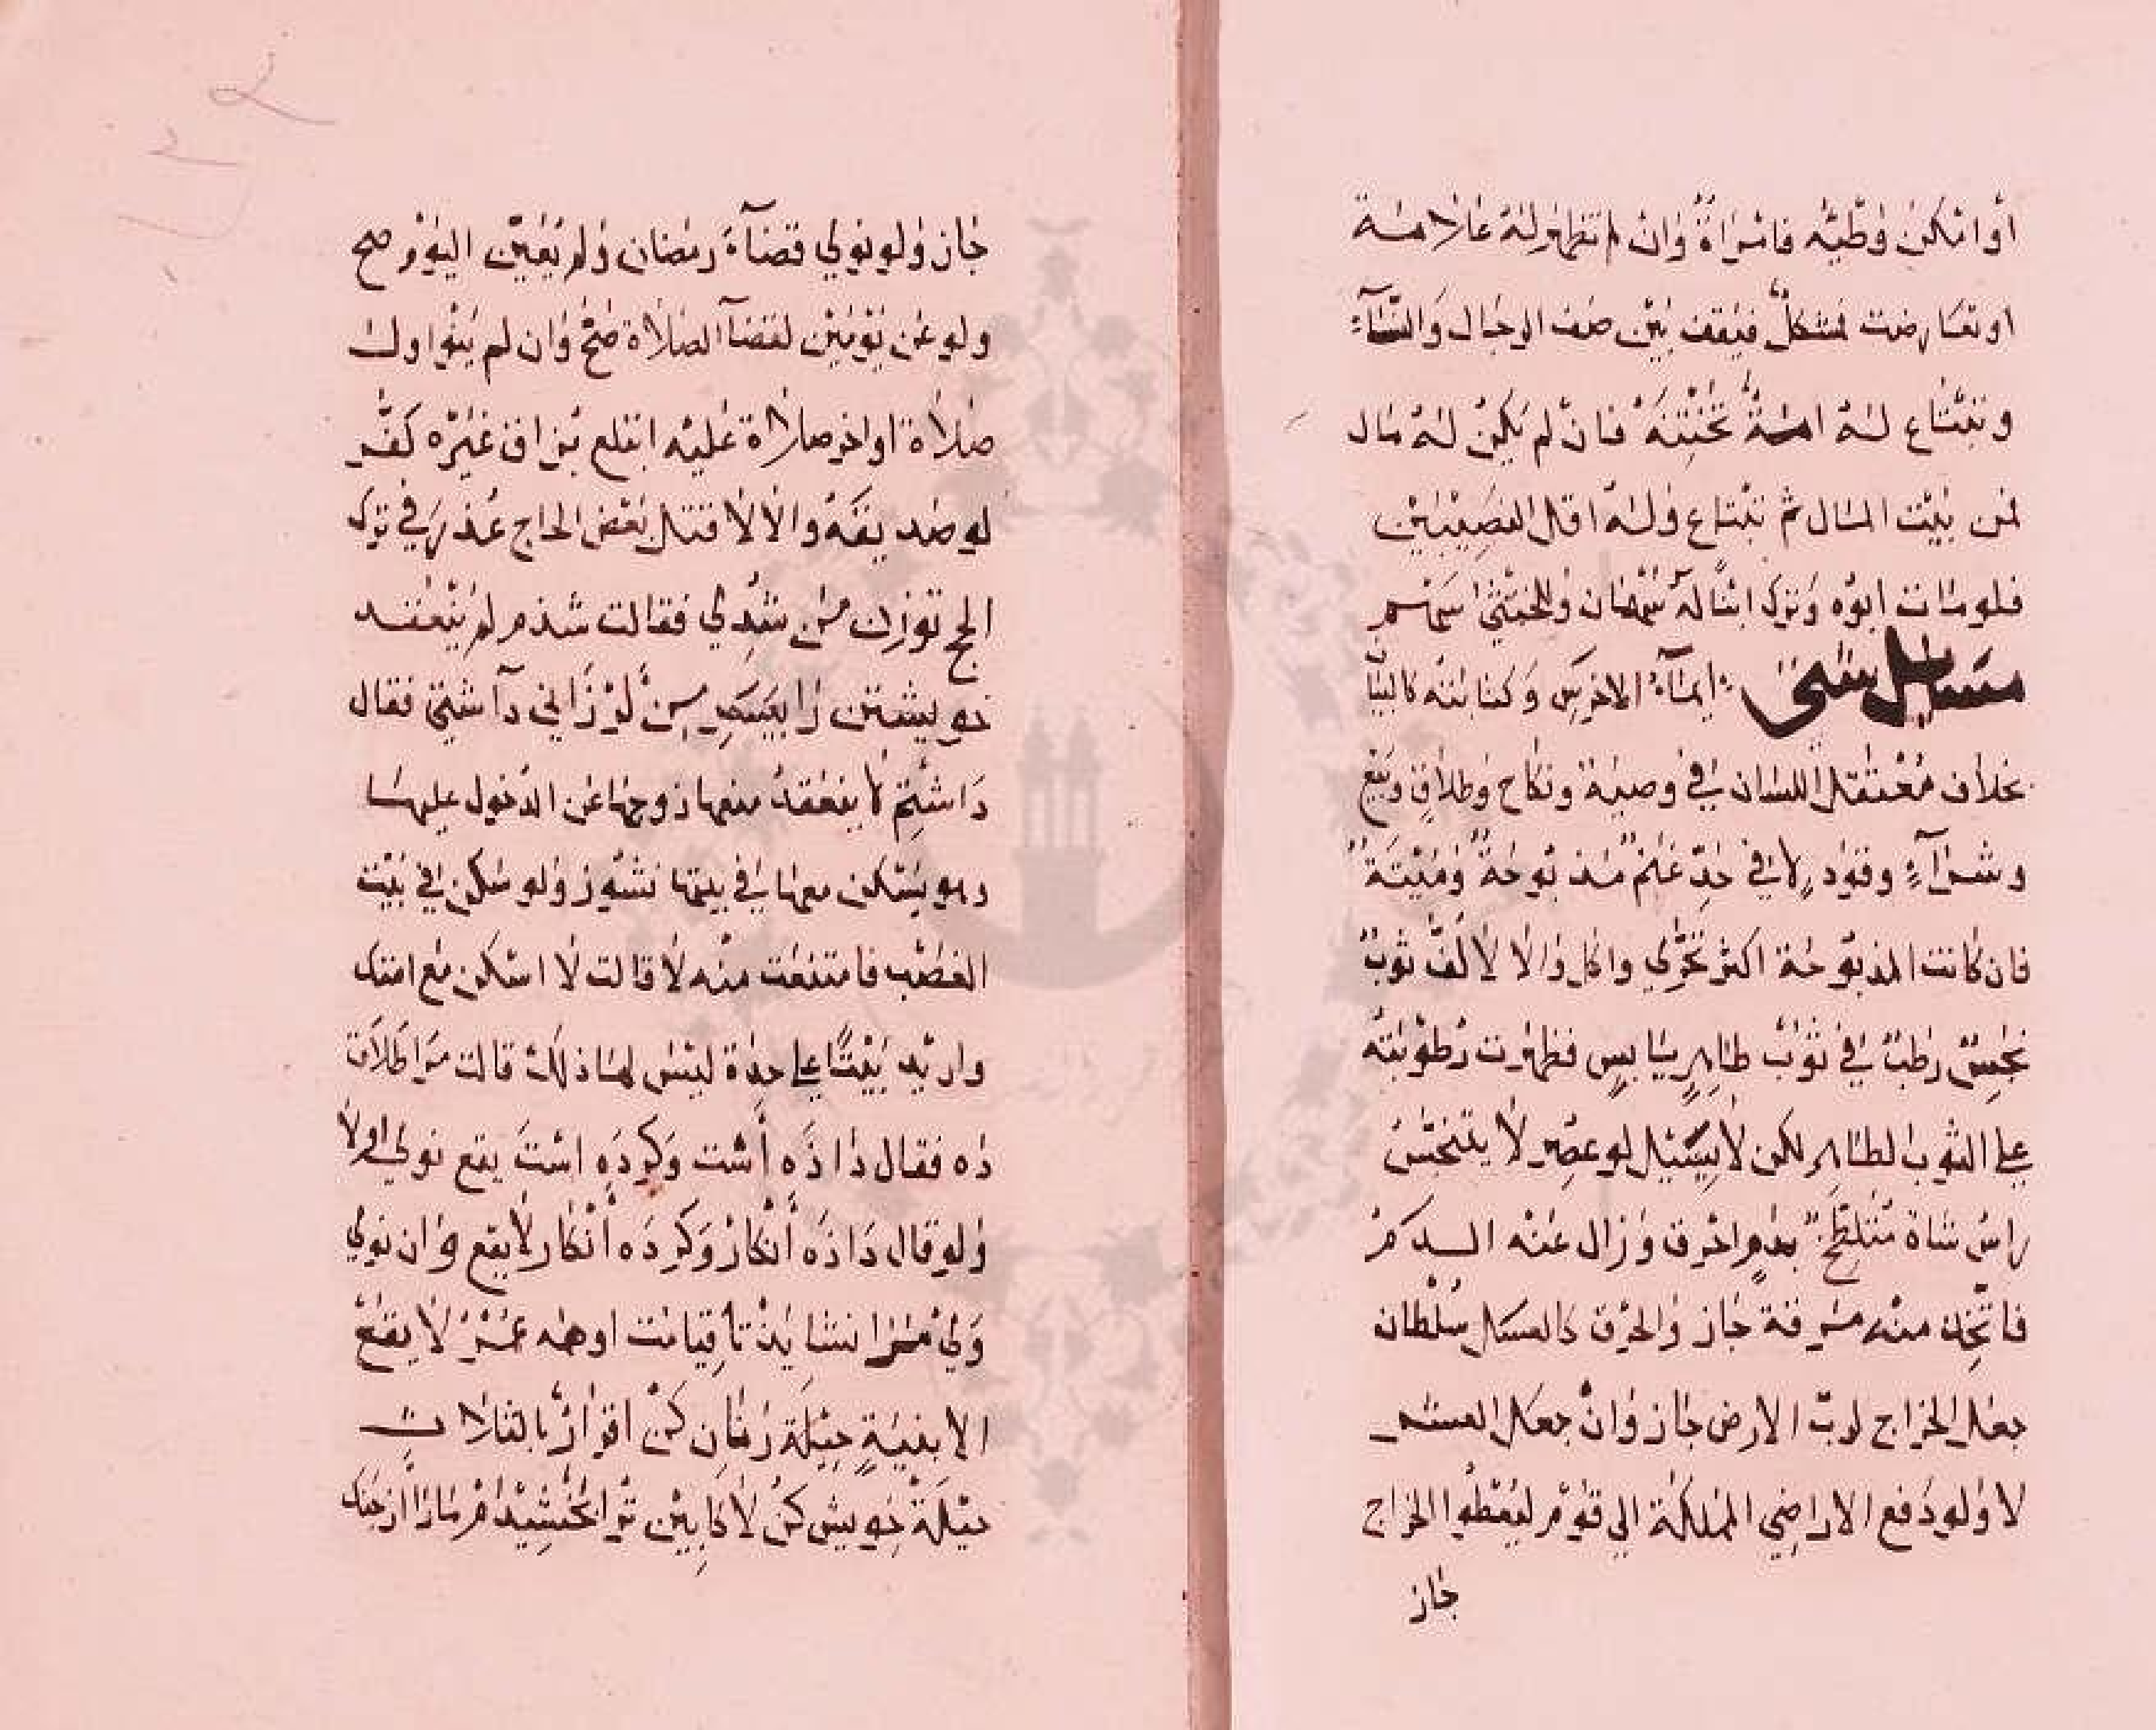 أو امكن وطيه فامراة وان لم تظهر له علامة
او تعارضت فمشكل فيقف بين صف الرجال والنساء
وتبتاع له امة تختنه فان لم يكن له مال
فمن بيت المال ثم تبتاع وله اقل النصيبين
فلو مات ابوه وترك ابنا له سهمان وللخنثى سهم
مسائل شتى ايماء الاخرس وكتابته كالبيا
بخلاف معتقل اللسان في وصية ونكاح وطلاق وبيع
وشراء وقود لا في حد غنم مذبوحة وميتة
فان كانت المذبوحة اكثر تحرى واكل والا لا لف ثوب
نجس رطب في ثوب طاهر يابس فظهرت رطوبته
على الثوب الطاهر لكن لا يسيل لو عصر لا يتنجس
راس شاة متلطخ بدم احرق وزال عنه الدم
فاتخذ منه مرقة جاز والحرق كالغسل سلطان
جعل الخراج لرب الارض جاز وان جعل العشر
لا ولو دفع الاراضي المملكة الى قوم ليعطوا الخراج
جاز
جاز ولو نوى قضاء رمضان ولم يعين اليوم صح
ولو عن يومين لقضا الصلاة صح وان لم ينوا ول
صلاة او اخر صلاة عليه ابتلع بزاق غيره كفر
لو صديقه والا لا قتل بعض الحاج عذر في ترك
الحج توزن من شدى فقالت شدم لم ينعقد
خويشتن را بيسر من لو زاني داشتي فقال
داشتم لا ينعقد منعها زوجها عن الدخول عليها
وهو يسكن معها في بيتها نشوز ولو سكن في بيت
الغصب فامتنعت منه لا قالت لا اسكن مع امتك
واريد بيتا على حدة ليس لها ذلك قالت مرا طلاق
ده فقال داده أست وكرده است يقع نوى اولا
ولو قال داده أنكار وكرده أنكار لا يقع وان نوى
وى مرا نشايد تا قيامت او همه عمر لا يقع
الا بنية حيلة زنان كن اقرار بالثلاث
حيلة خويش كن لا كابين ترا بخشيدم مرا از جنك